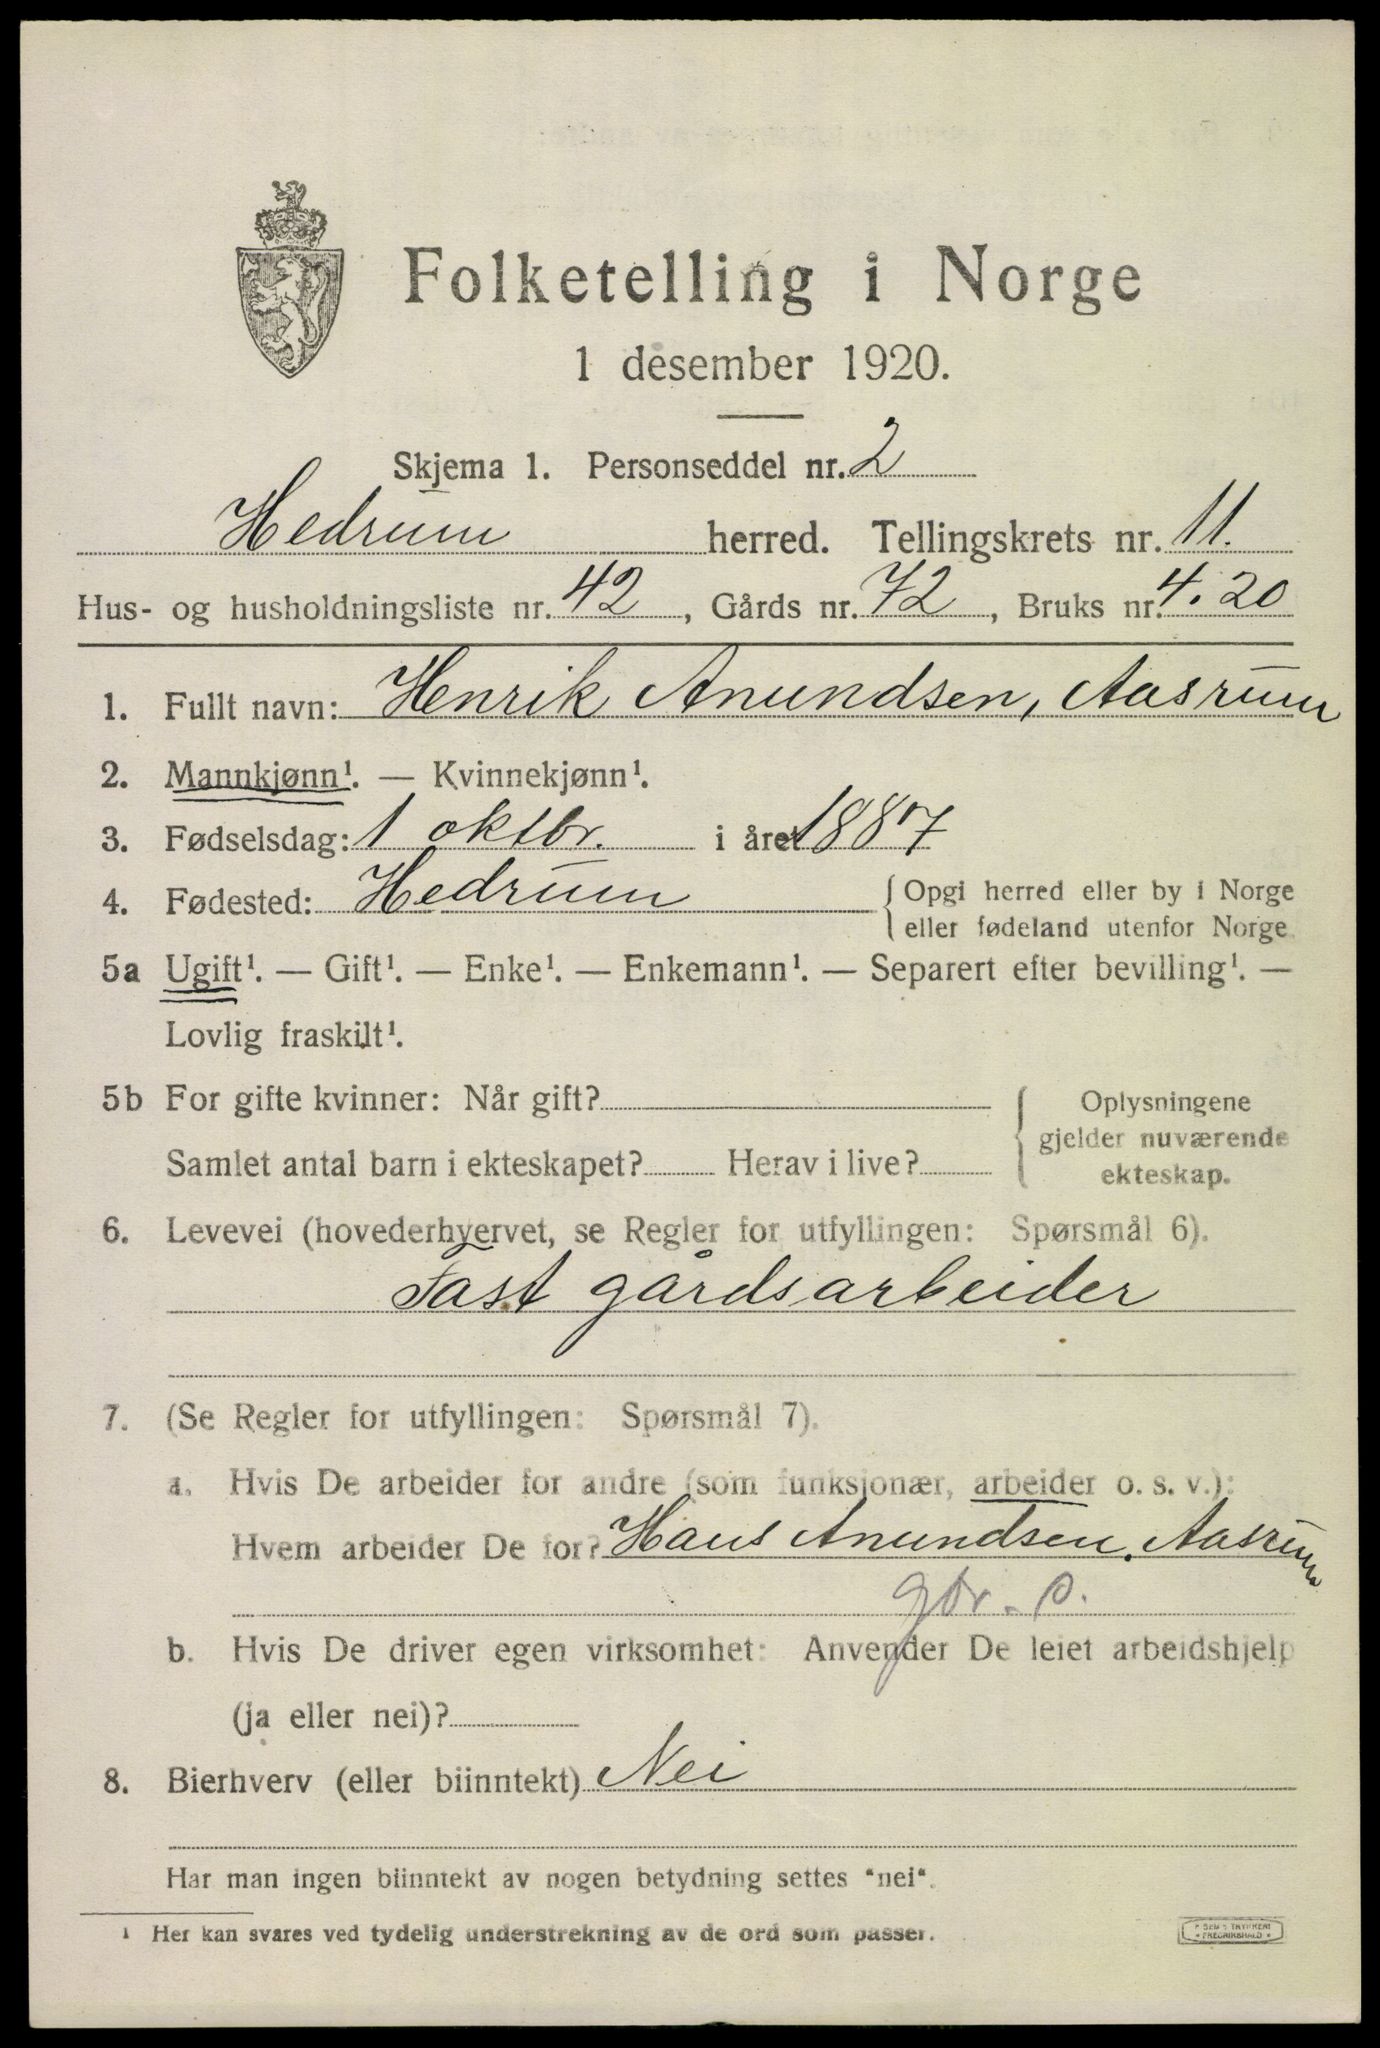 Folketelling i Norge
1 desember 1920.
Skjema 1. Personseddel nr. 2
Hedrum herred. Tellingskrets nr. 11.
Hus- og husholdningsliste nr. 42, Gårds nr. 72, Bruks nr. 4.20
1. Fullt navn: Henrik Anundsen, Aasrum
2. Mannkjønn¹. — Kvinnekjønn¹.
3. Fødselsdag: 1 oktbr. i året 1887
4. Fødested: Hedrum { Opgi herred eller by i Norge
eller fødeland utenfor Norge
5a Ugift¹. — Gift¹. — Enke¹. — Enkemann¹. — Separert efter bevilling¹. —
Lovlig fraskilt¹.
5b For gifte kvinner: Når gift? { Oplysningene
gjelder nuværende
Samlet antal barn i ekteskapet? Herav i live?
ekteskap.
6. Levevei (hovederhvervet, se Regler for utfyllingen: Spørsmål 6).
Fast gårdsarbeider
7. (Se Regler for utfyllingen: Spørsmål 7).
a. Hvis De arbeider for andre (som funksjonær, arbeider o. s. v.):
Hvem arbeider De for? Hans Anundsen, Aasrum
gbr. 
b. Hvis De driver egen virksomhet: Anvender De leiet arbeidshjelp
(ja eller nei)?
8. Bierhverv (eller biinntekt) Nei
Har man ingen biinntekt av nogen betydning settes "nei".
¹ Her kan svares ved tydelig understrekning av de ord som passer.